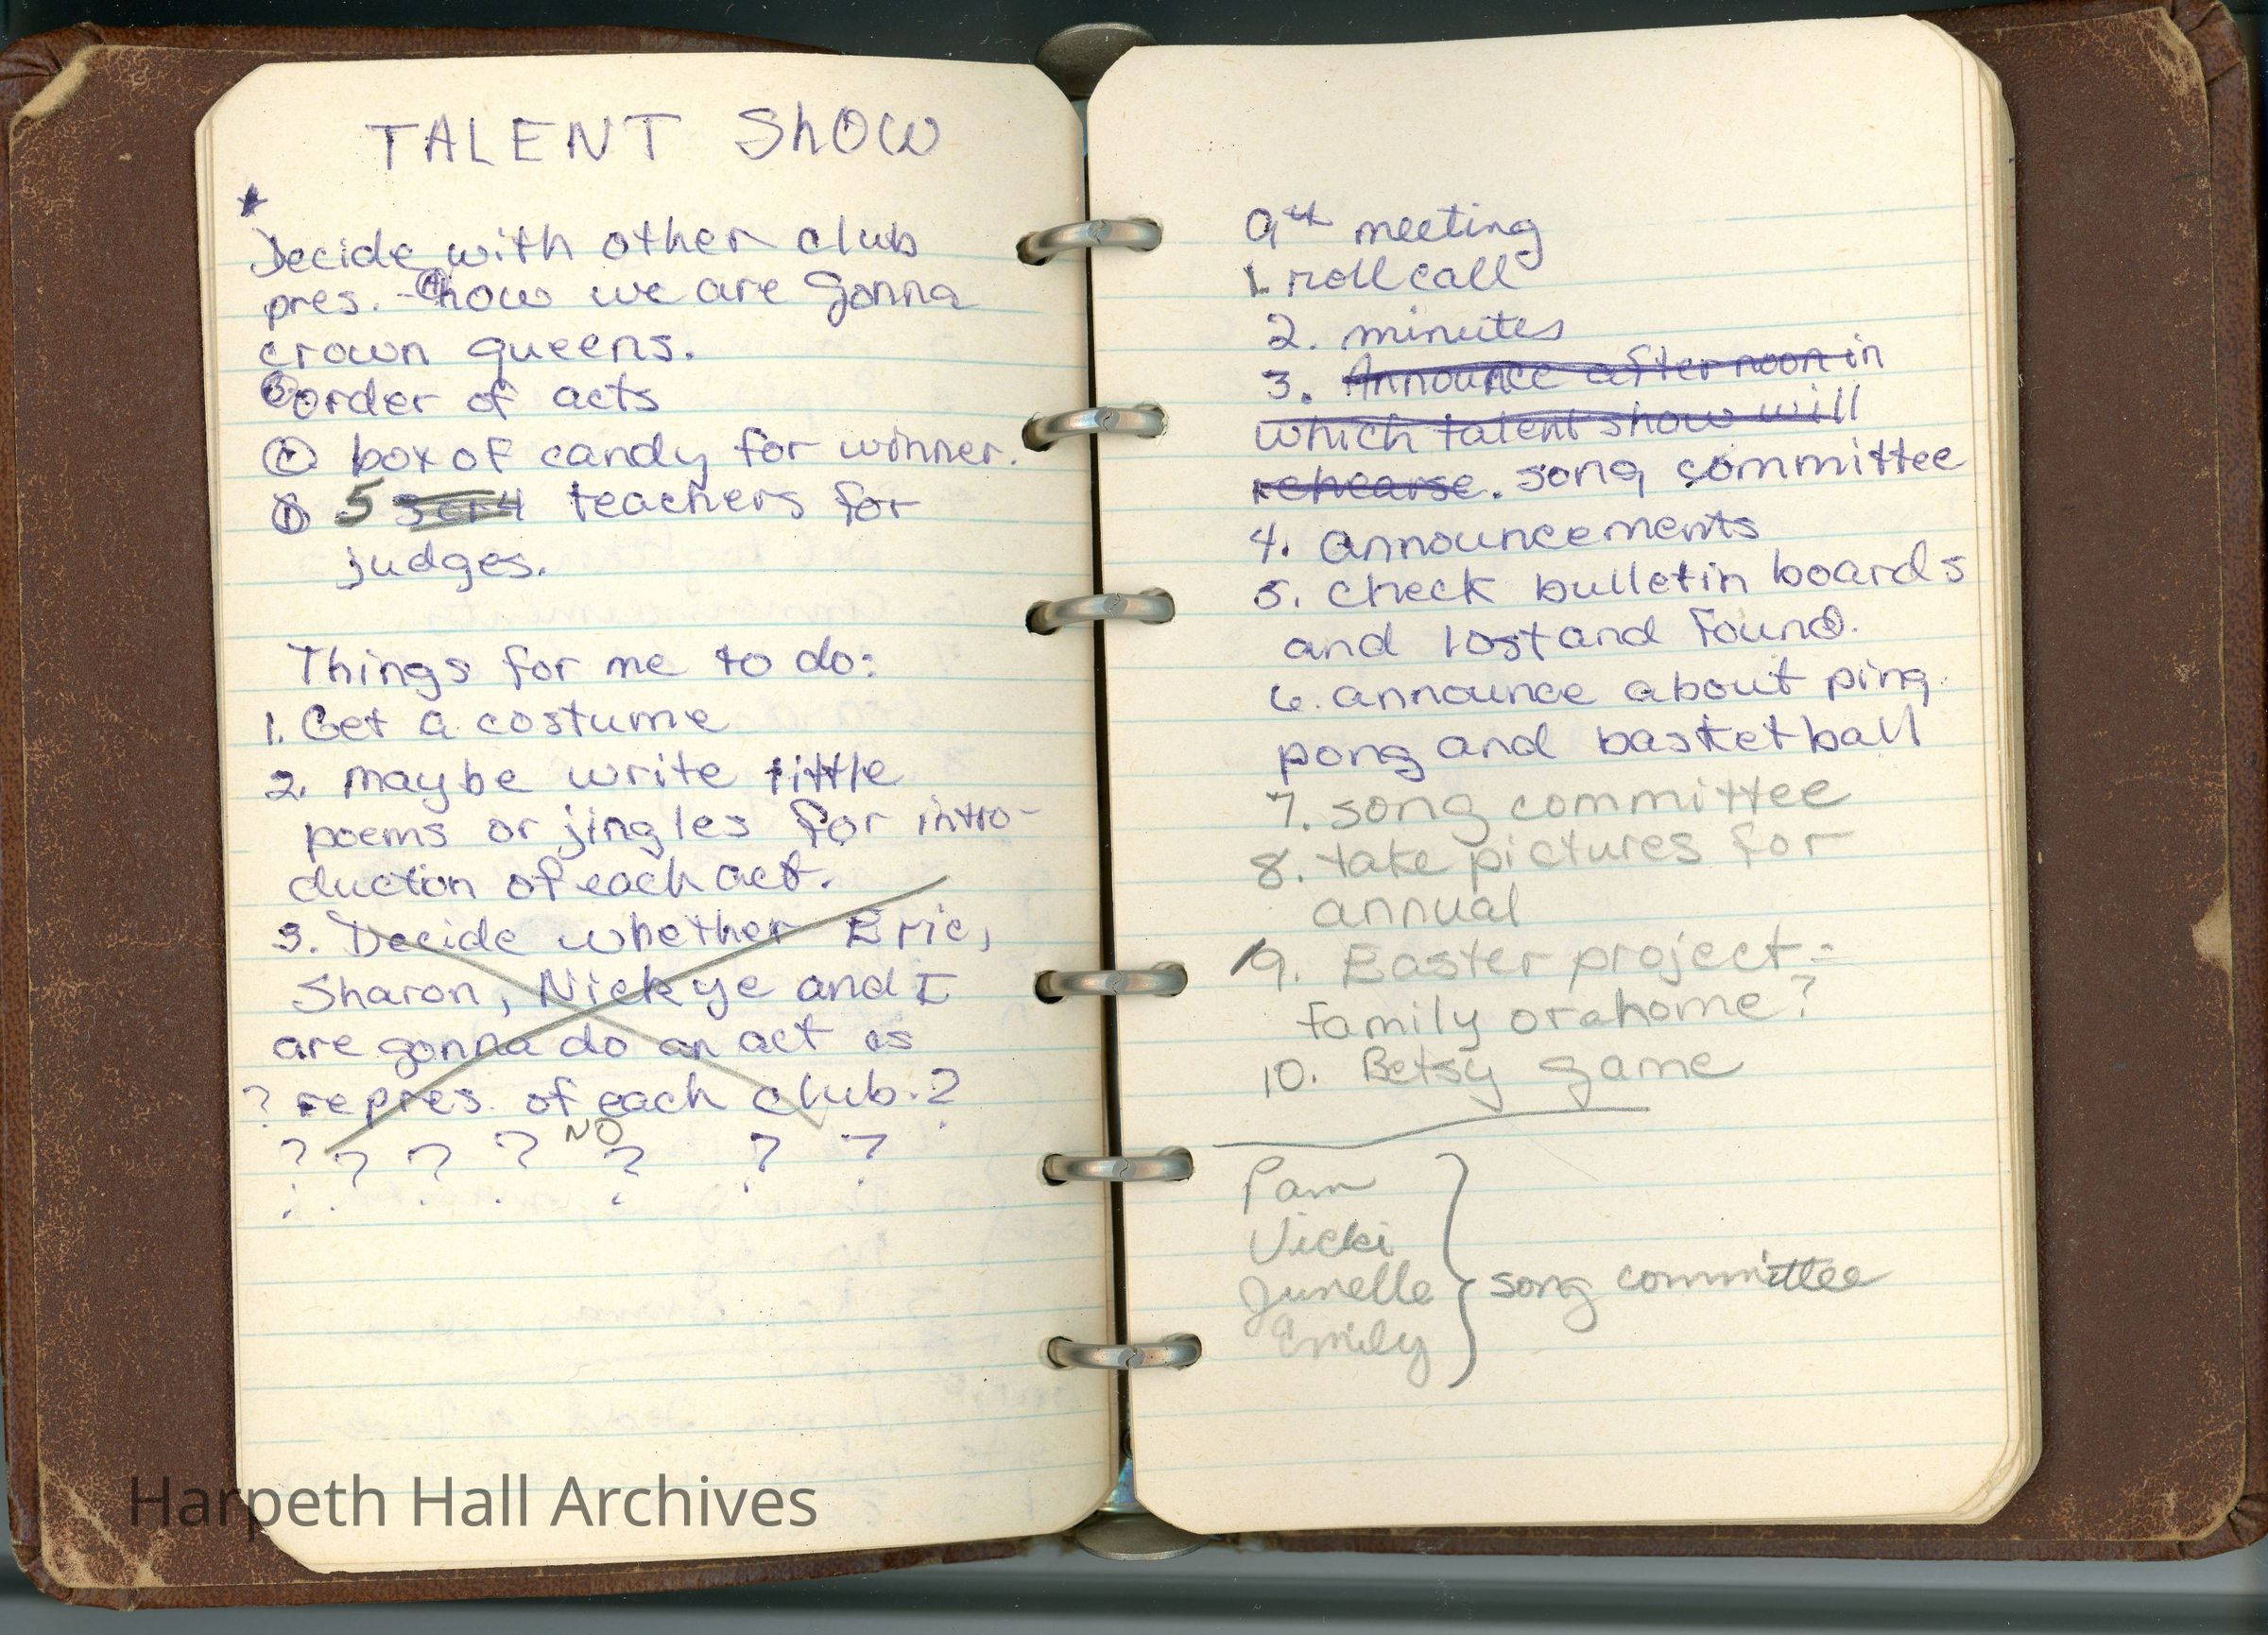 TALENT ShOW
*
Decide with other club
pres. - Ⓐ how we are gonna
crown queens.
Ⓑ order of acts
Ⓒ box of candy for winner.
Ⓓ 5 3 or 4 teachers for
judges.
Things for me to do:
1. Get a costume
2. maybe write little
poems or jingles for intro-
duction of each act.
3. Decide whether Eric,
Sharon, Nickye and I
are gonna do an act as
? repres. of each club.?
NO
? ? ? ? ? ? ?
9th meeting
1. roll call
2. minutes
3. Announce afternoon in
which talent show will
rehearse. song committee
4. announcements
5. check bulletin boards
and lost and found.
6. announce about ping
pong and basketball
7. song committee
8. take pictures for
annual
9. Easter project -
family or a home?
10. Betsy game
Pam
Vicki
Junelle
Emily
song committee
Harpeth Hall Archives